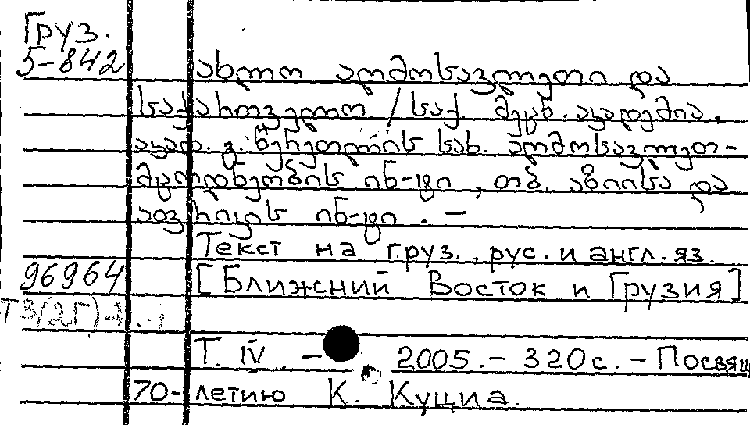 Груз.
5-842
ახლო აღმოსავლეთი და
საქართველო / საქ. მეცნ. აკადემია,
აკად. გ. წერეთლის სახ. აღმოსავლეთ-
მცოდნეობის ინ-ტი, თბ. აზიისა და
აფრიკის ინ-ტი. –
Текст на груз., рус. и англ. яз.
96964 [Ближний Восток и Грузия]
Т. IV. – 2005. – 320 с. – Посвящ
70-летию К. Куциа.